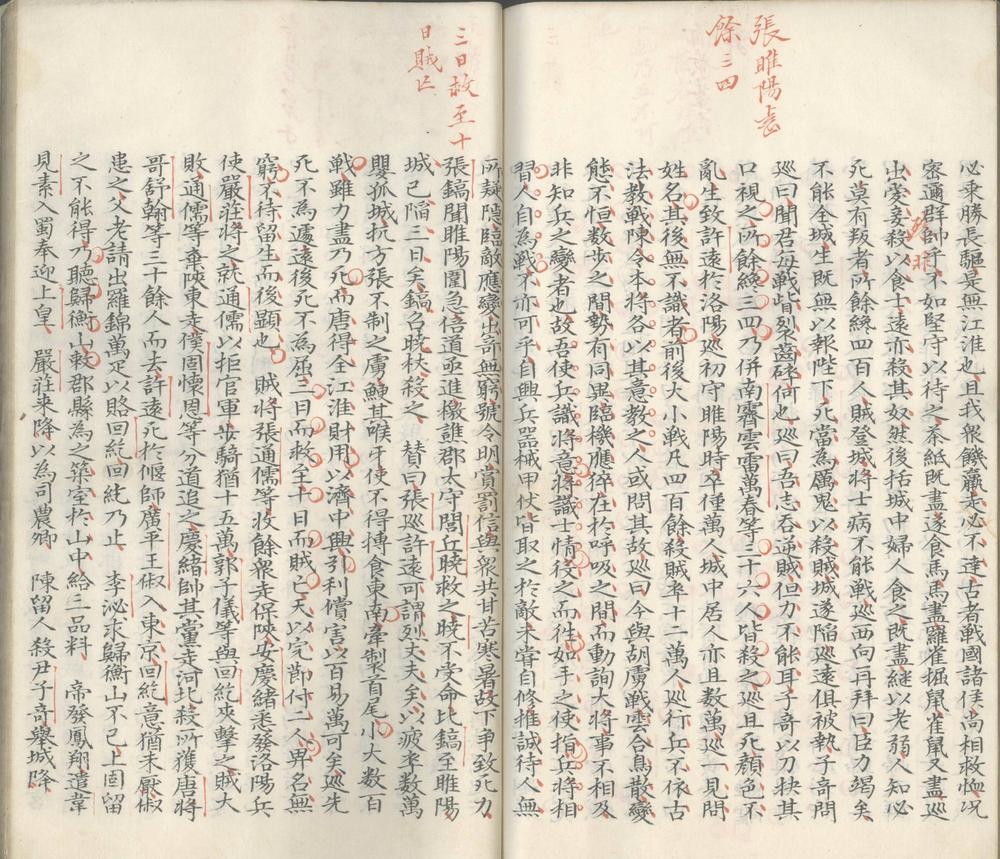 張睢陽亡
餘三四
必乘勝長驅是無江淮也且我衆饑羸走必不達古者戰國諸侯尚相救恤况
密邇群帥乎不如堅守以待之茶紙既盡遂食馬馬盡羅雀掘鼠雀鼠又盡巡
出愛妾殺以食士遠亦殺其奴然後括城中婦人食之既盡継以老弱人知必
死莫有叛者所餘纔四百人賊登城將士病不能戰巡西向再拜曰臣力竭矣
不能全城生既無以報陛下死當為厲鬼以殺賊城遂陷巡遠俱被執子奇問
巡曰聞君每戰眥裂齒碎何也巡曰吾志吞逆賊但力不能耳子奇以刀抉其
口視之所餘纔三四乃併南霽雲雷萬春等三十六人皆殺之巡且死顔色不
亂生致許遠於洛陽巡初守睢陽時卒僅萬人城中居人亦且數萬巡一見問
姓名其後無不識者前後大小戰凡四百餘殺賊卒十二萬人巡行兵不依古
法教戰陳令本將各以其意教之人或問其故巡曰今與胡虜戰雲合鳥散變
態不恒数步之間勢有同異臨機應猝在於呼吸之間而動詢大將事不相及
非知兵之變者也故吾使兵識將意將識士情投之而徃如手之使指兵將相
習人自為戰不亦可乎自興兵器械甲仗皆取之於敵未嘗自修推誠待人無
三日救至十
日賊亡
所疑隱臨敵應變出奇無窮號令明賞罰信與衆共甘苦寒暑故下爭致死力
張鎬聞睢陽圍急倍道亟進檄譙郡太守閭丘曉救之曉不受命比鎬至睢陽
城已陷三日矣鎬召曉杖殺之　賛曰張巡許遠可謂烈丈夫矣以疲卒數萬
嬰孤城抗方張不制之虜鯁其喉牙使不得摶食東南牽製首尾小大数百
戰雖力盡乃死而唐得全江淮財用以濟中興引利償害以百易萬可矣巡先
死不為遽遠後死不為屈三日而救至十日而賊亡天以完節付二人畀名無
窮不待留生而後顯也　賊將張通儒等收餘衆走保陝安慶緒悉發洛陽兵
使嚴莊將之就通儒以拒官軍步騎猶十五萬郭子儀等與回紇夾擊之賊大
敗通儒等棄陝東走僕固懷恩等分道追之慶緒帥其黨走河北殺所獲唐將
哥舒翰等三十餘人而去許遠死於偃師廣平王俶入東京回紇意猶未厭俶
患之父老請出羅錦萬疋以賂回紇回紇乃止　李泌求歸衡山不已上固留
之不能得乃聽歸衡山敕郡縣為之築室於山中給三品料　帝發鳳翔遣韋
見素入蜀奉迎上皇　嚴莊来降以為司農卿　陳留人殺尹子奇舉城降